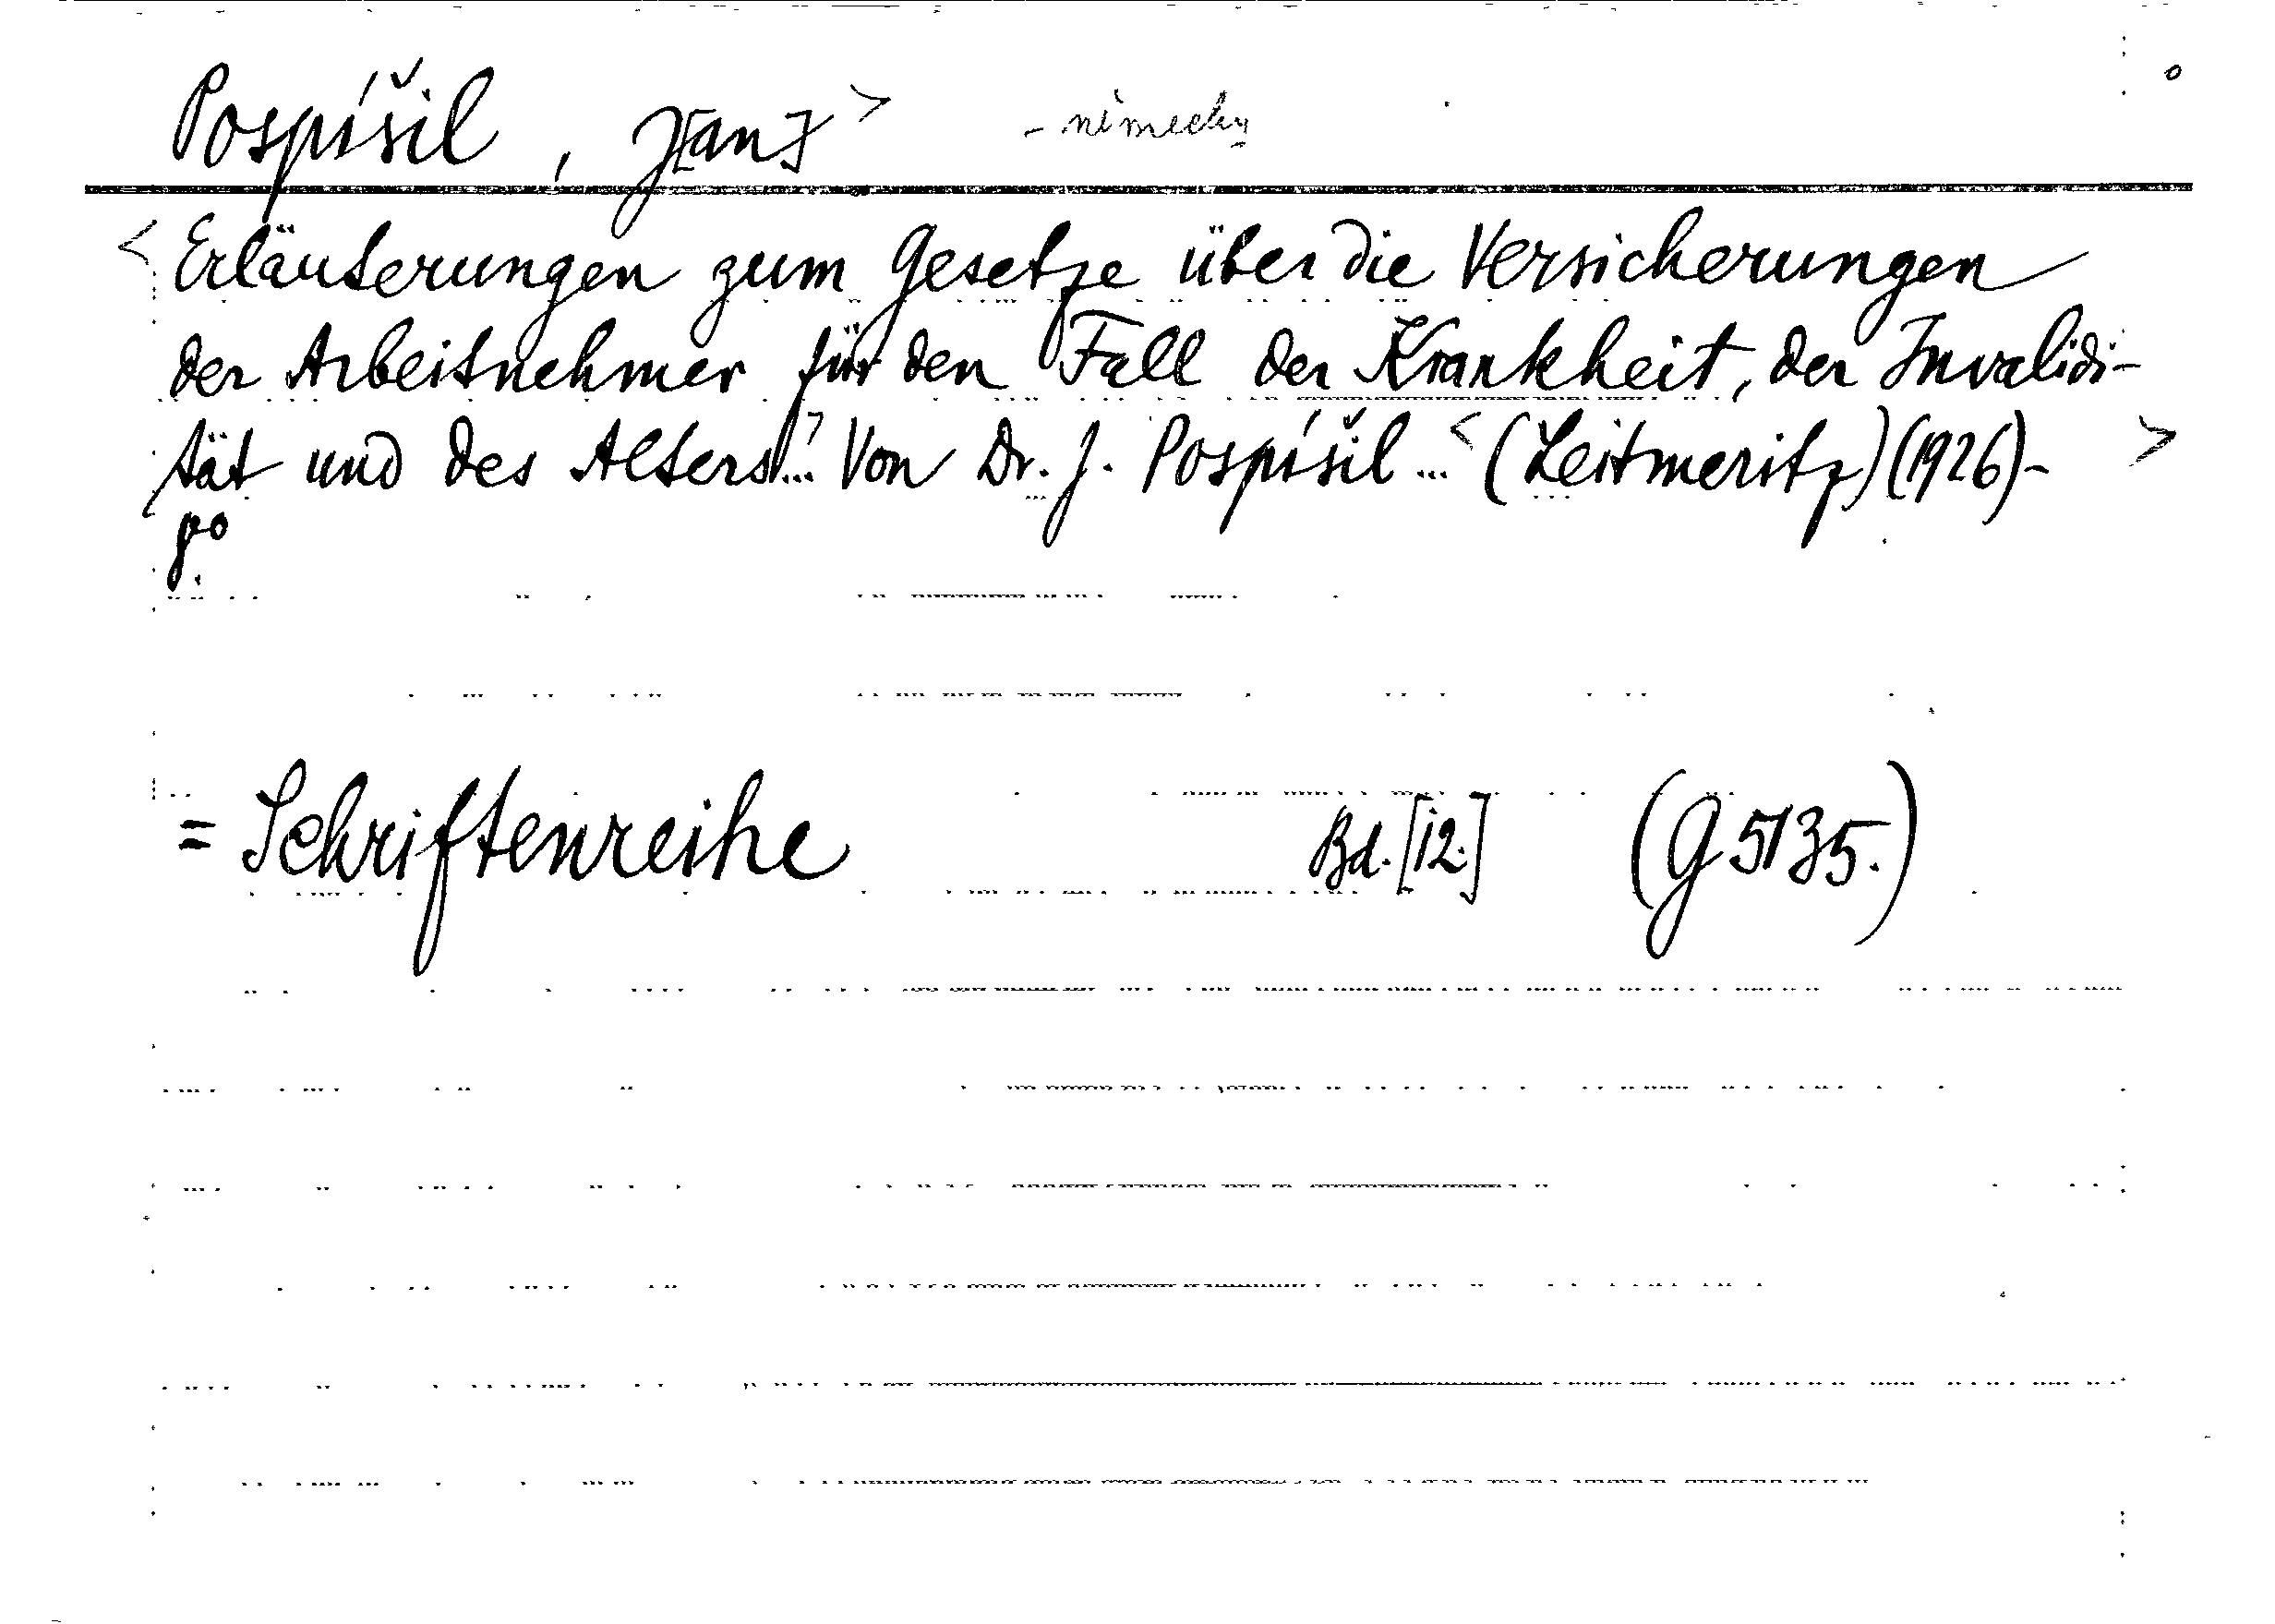 Pospíšil, J[an] > - německy
< Erläuterungen zum Gesetze über die Versicherungen
der Arbeitnehmer für den Fall der Krankheit, der Invalidi-
tät und des Alters... > Von Dr. J. Pospíšil ... < (Leitmeritz) (1926) - >
8°.
= Schriftenreihe Bd. [12.] (G 5135.)